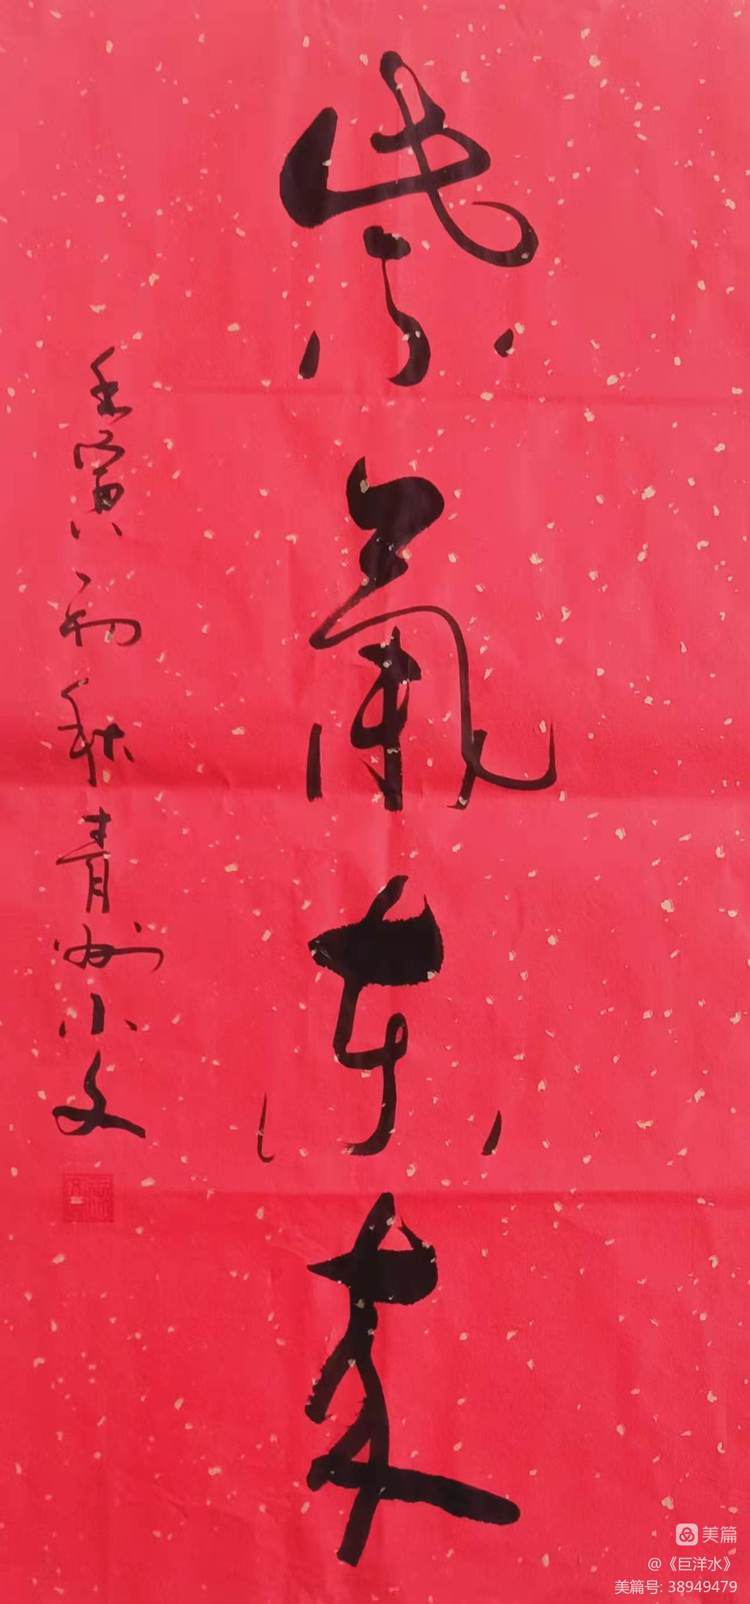 紫气东来
壬寅初秋青州小文
美篇
@《巨洋水》
美篇号: 38949479